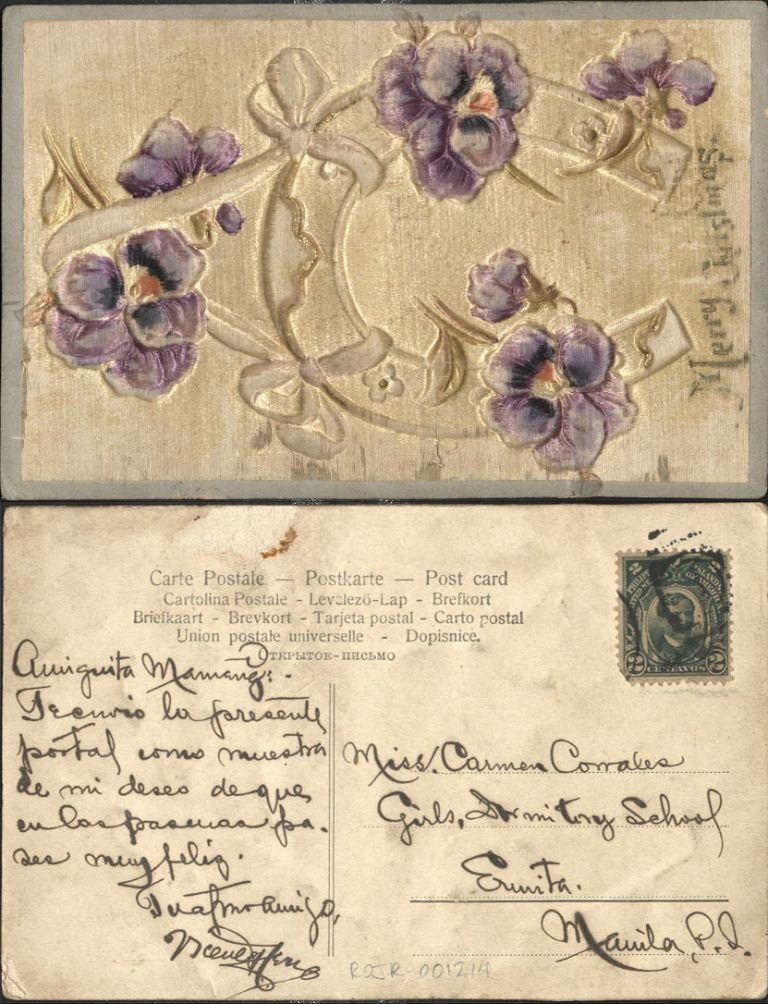 Merry Christmas.
Carte Postale — Postkarte — Post card
Cartolina Postale - Levelező-Lap - Brefkort
Briefkaart - Brevkort - Tarjeta postal - Carto postal
Union postale universelle - Dopisnice.
Открытое-письмо
2 2
PHILIPPINE ISLANDS
UNITED STATES OF AMERICA
2 CENTAVOS 2
Amiguita Mameng:.
Te envio la presente
postal como muestra
de mi deseo de que
en las pascuas pa-
ses muy feliz.
Tu afmo amigo,
Miss. Carmen Corrales
Girls, Dormitory School
Ermita.
Manila, P.I.
ROJR-001214